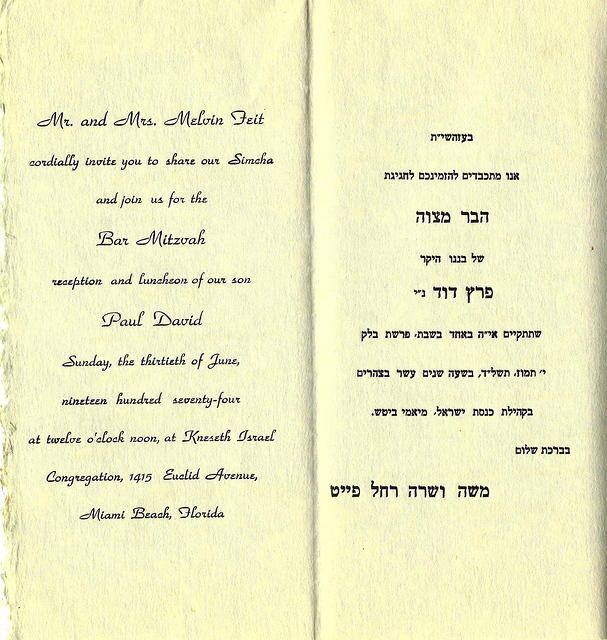 Mr. and Mrs. Melvin Feit
cordially invite you to share our Simcha
and join us for the
Bar Mitzvah
reception and luncheon of our son
Paul David
Sunday, the thirtieth of June,
nineteen hundred seventy-four
at twelve o'clock noon, at Kneseth Israel
Congregation, 1415 Euclid Avenue,
Miami Beach, Florida
בעזהשי״ת
אנו מתכבדים להזמינכם לחגיגת
הבר מצוה
של בננו היקר
פרץ דוד נ״י
שתתקיים אי״ה באחד בשבת, פרשת בלק
י׳ תמוז, תשל״ד, בשעה שנים עשר בצהרים
בקהילת כנסת ישראל, מיאמי ביטש.
בברכת שלום
משה ושרה רחל פייט